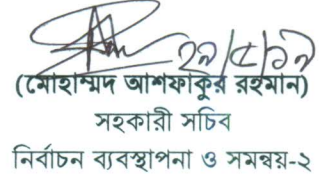 ২৯/৫/১৯
(মোহাম্মদ আশফাকুর রহমান)
সহকারী সচিব
নির্বাচন ব্যবস্থাপনা ও সমন্বয়-২